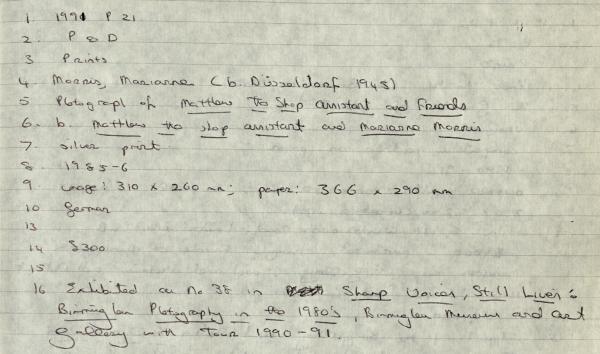 1 1991 P 21
2. P & D
3 Prints
4 Morris, Marianne (b. Düsseldorf 1948)
5 Photograph of Matthew the Shop assistant and Friends
6. b. Matthew the shop assistant and Marianne Morris
7. silver print
8. 1985-6
9. image: 310 x 260 mm; paper: 366 x 290 mm
10 German
13
14 $300
15
16 Exhibited as No 38 in Sharp Voices, Still Lives:
Birmingham Photography in the 1980's, Birmingham Museum and Art
Gallery with Tour 1990-91.